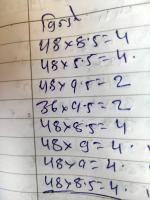 48×8·5=4
48×8·5=4·
48×9·5=2
36×9·5=2
48×8·5=4
48×9=4·
48×9=4·
48×8·5=4·